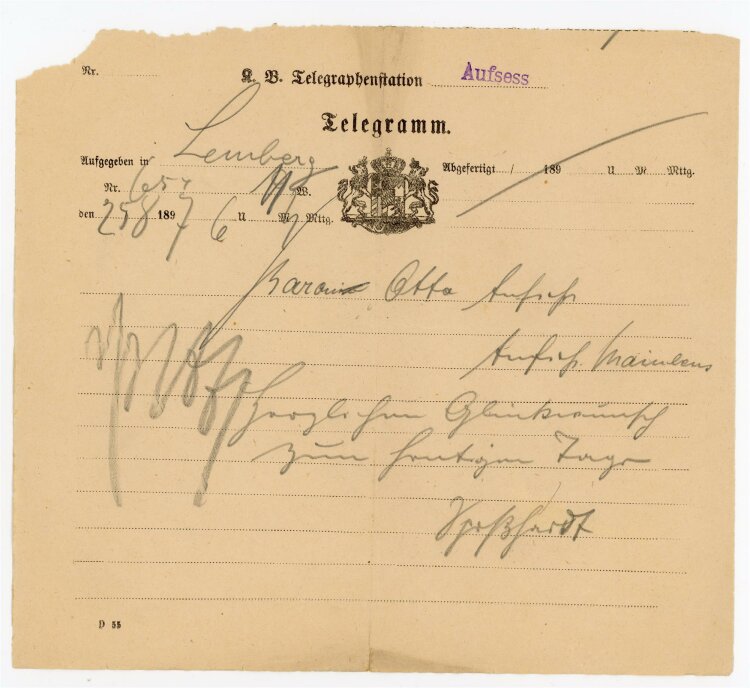 Nr.
K. B. Telegraphenstation Aufsess
Telegramm.
Aufgegeben in Lemberg
Abgefertigt / 189 U M Mttg.
Nr. W.
den 25/8 1897 6 U M Mttg.
Baron Otto Aufseß
Aufseß
herzlichen Glückwunsch
zum heutigen Tage
D 55